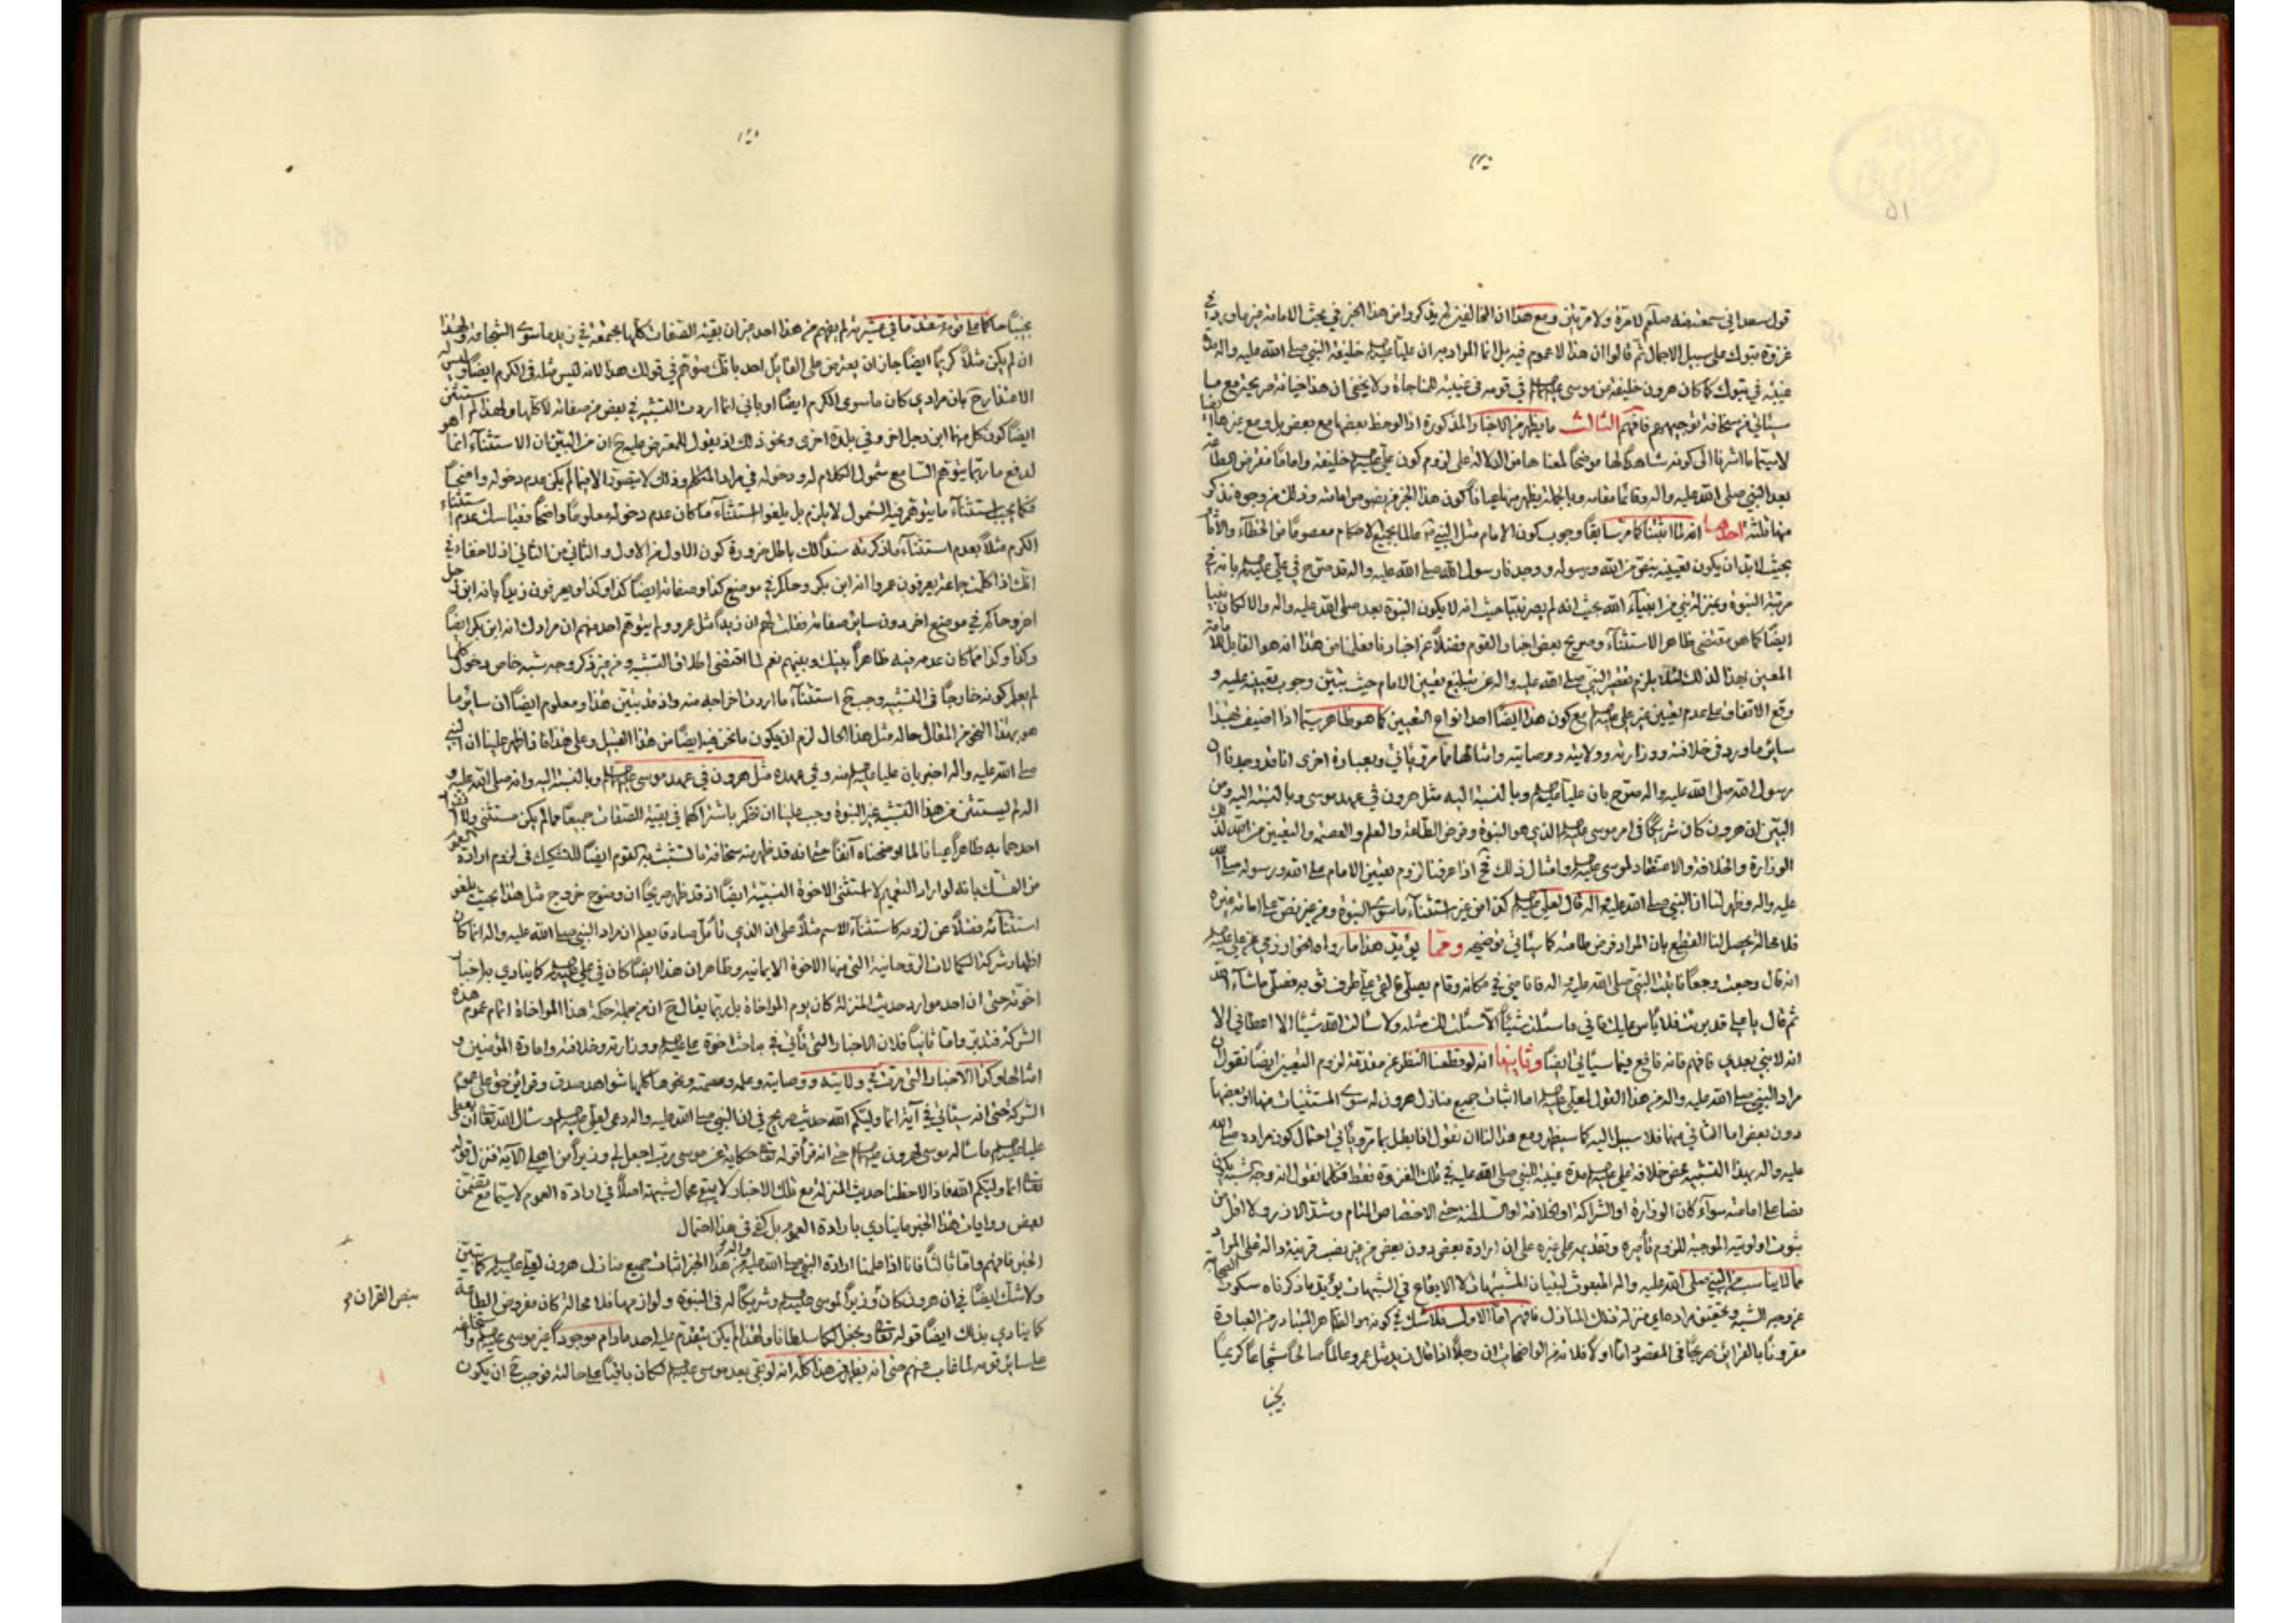 قول سعد اني سمعته منه صلّم لا مرّة ولا مرتين ومع هذا ان المخالفين لم يذكروا من هذا الخبر في بحث الامامة غير ما ورد في
غزوة تبوك على سبيل الاجمال ثم قالوا ان هذا لا عموم فيه بل انما المراد به ان عليا عليه خليفة النبي صلى الله عليه واله مدة
غيبته في تبوك كما كان هرون خليفة من موسى في قومه في غيبته للمناجاة ولا يخفى ان هذا خيانة صريحة مع ما
سيأتي من سخافة توجيههم فافهم الثالث ما يظهر من الاخبار المذكورة اذا لوحظ بعضها مع بعض بل ومع غيرها ايضا
لاسيما ما اشرنا الى كونه شاهدا لها موضحا لمعناها من الدلالة على لزوم كون علي خليفة واماما مفترض الطاعة
بعد النبي صلى الله عليه واله وقائما مقامه وبالجملة يظهر منها عيانا كون هذا الخبر من نصوص امامته وذلك من وجوه نذكر
منها ثلثة احدها انه لما اثبتنا كما مر سابقا وجوب كون الامام مثل النبي عالما بجميع الاحكام معصوما من الخطاء والاثام
بحيث لابد ان يكون تعيينه بنص من الله ورسوله ووجدنا رسول الله صلى الله عليه واله قد صرح في علي بانه في
مرتبة النبوة وبمنزلة نبي من انبياء الله بحيث انه لم يصر نبيا حيث انه لا يكون النبوة بعده صلى الله عليه واله والا لكان نبيا
ايضا كما هو مقتضى ظاهر الاستثناء وصريح بعض اخبار القوم فضلا عن اخبارنا فعلمنا من هذا انه هو القابل للامامة
المعين بهذا لذلك لئلا يلزم تقصير النبي صلى الله عليه واله عن تبليغ تعيين الامام حيث تبين وجوب تعيينه عليه و
وقع الاتفاق على عدم تعيين غير علي مع كون هذا ايضا احد انواع التعيين كما هو ظاهر سيما اذا اضيف لهذا
سائر ما ورد في خلافته ووزارته وولايته ووصايته وامثالها مما مر ويأتي وبعبارة اخرى انا قد وجدنا ان
رسول الله صلى الله عليه واله صرح بان عليا وبالنسبة اليه مثل هرون في عهد موسى وبالنسبة اليه ومن
البين ان هرون كان شريكا في امر موسى الذي هو النبوة وفرض الطاعة والعلم والعصمة والتعيين من الله لذلك
الوزارة والخلافة والاعتضاد لموسى وامثال ذلك فح اذا عرفنا لزوم تعيين الامام على الله ورسوله صلى الله
عليه واله وظهر لنا ان النبي صلى الله عليه واله قال لعلي كذا من غير استثناء ما سوى النبوة ومن غير نص على امامة غيره
فلا محالة يحصل لنا القطع بان المراد فرض طاعته كما سيأتي توضيحه ومما يؤيد هذا ما رواه الخوارزمي عن علي
انه قال وجعت وجعا فاتيت النبي صلى الله عليه واله فاقامني في مكانه وقام يصلي فالقى علي طرف ثوبه فصلى ما شاء الله
ثم قال يا علي قد برئت فلا باس عليك فاني ما سئلت شيئا الا سئلت لك مثله ولا سألت الله شيئا الا اعطاني الا
انه لا نبي بعدي فافهم فانه نافع فيما سيأتي ايضا وثانيها انه لو قطعنا النظر عن مقدمة لزوم التعيين ايضا نقول ان
مراد النبي صلى الله عليه واله من هذا القول لعلي اما اثبات جميع منازل هرون له سوى المستثنيات منها او بعضها
دون بعض اما الثاني منها فلا سبيل اليه كما سيظهر ومع هذا لنا ان نقول انا نبطل بما مر ويأتي احتمال كون مراده صلى الله
عليه واله بهذا التشبيه محض خلافة علي مدة غيبة النبي صلى الله عليه في تلك الغزوة فقط فكلما نقول انه وجه شبهه يكون
نصا على امامته سواء كان الوزارة او الشراكة او الخلافة او السلطنة حتى الاختصاص التام وشد الازر ولا اقل من
ثبوت اولويته الموجبة للزوم تأميره وتقديمه على غيره على ان ارادة بعض دون بعض من غير نصب قرينة دالة على المراد
مما لا يناسب من النبي صلى الله عليه واله المبعوث لبيان المشتبهات لا الايقاع في الشبهات يؤيد ما ذكرناه سكوت الصحابة
عن وجه الشبه وتحقيق مراده اي منزلة من تلك المنازل فافهم اما الاول فلا شك في كونه هو الظاهر المتبادر من العبارة
مقرونا بالقرائن صريحا في المقصود اما اولا فلانه من الواضحات ان رجلا اذا قال زيد مثل عمرو عالما صالحا شجاعا كريما
نجيبا
نجيبا حاكما على قومه نقّد ما في عشيرته لم يفهم من هذا احد غير ان بقية الصفات كلها مجتمعة في زيد ما سوى الشجاعة ولهذا
ان لم يكن مثلا كريما ايضا جاز ان يعترض على القائل احد بانك متوهم في قولك هذا لانه ليس مثله في الكرم ايضا وليس له
الاعتذار ح بان مرادي كان ما سوى الكرم ايضا او باني انما اردت التشبيه في بعض من صفاته لا كلها ولهذا لم استثن
ايضا كون كل منهما ابن رجل اخر وفي بلدة اخرى ونحو ذلك اذ يقول المعترض عليه ح ان من البين ان الاستثناء انما هو
لدفع ما ربما يتوهم السامع شمول الكلام له ودخوله في مراد المتكلم وذلك لا يتصور الا فيما لم يكن عدم دخوله واضحا
فكما يجب استثناء ما يتوهم فيه الشمول لا يلزم بل يلغو استثناء ما كان عدم دخوله معلوما واضحا فقياسك عدم استثناء
الكرم مثلا بعدم استثناء ما ذكرته سندا لك باطل ضرورة كون الاول من الاول والثاني من الثاني اذ لا خفاء في
انك اذا كلمت جماعة يعرفون عمروا انه ابن بكر وحاكم في موضع كذا وصفاته ايضا كذا وكذا ويعرفون زيدا بانه ابن رجل
اخر وحاكم في موضع اخر دون سائر صفاته فقلت لهم ان زيدا مثل عمرو ولم يتوهم احد منهم ان مرادك انه ابن بكر ايضا
وكذا وكذا مما كان عدمه فيه ظاهرا بينك وبينهم نعم لما اقتضى اطلاق التشبيه من غير ذكر وجه شبه خاص دخول كلما
لم يعلم كونه خارجا في التشبيه وجب ح استثناء ما اردت اخراجه منه واذ قد تبين هذا ومعلوم ايضا ان سائر ما
هو بهذا النحو من المقال حاله مثل هذا الحال لزم ان يكون ما نحن فيه ايضا من هذا القبيل وعلى هذا فاذا ظهر علينا ان النبي
صلى الله عليه واله اخبر بان عليا منه وفي عهده مثل هرون في عهد موسى وبالنسبة اليه وانه صلى الله عليه و
اله لم يستثن من هذا التشبيه غير النبوة وجب علينا ان نحكم باشتراكهما في بقية الصفات جميعا مما لم يكن مستثنى ولا انفراد
احدهما به ظاهرا عيانا لما اوضحناه آنفا حتى انه قد ظهر منه سخافة ما تشبث به القوم ايضا للتشكيك في لزوم ارادة العموم
من التمسك بانه لو اراد التعميم لاستثنى الاخوة النسبية ايضا اذ قد ظهر صريحا ان وضوح خروج مثل هذا بحيث يلغو
استثناؤه فضلا عن لزومه كاستثناء الاسم مثلا على ان الذي تأمل صادقا يعلم ان مراد النبي صلى الله عليه واله انما كان
اظهار شركة الكمالات الروحانية التي منها الاخوة الايمانية وظاهر ان هذا ايضا كان في علي كما ينادي به اخبار
اخوته حتى ان احد موارد حديث المنزلة كان يوم المواخاة بل ربما يقال ح ان من جملة حكمة هذا المواخاة اتمام عموم هذه
الشركة فتدبر واما ثانيا فلان الاخبار التي تأتي في مباحث اخوة علي ووزارته وخلافته وامارة المؤمنين و
امثالها وكذا الاخبار التي مرت في ولايته ووصايته وعلمه وعصمته ونحوها كلها شواهد صدق وقرائن حق على عموم
الشركة حتى انه سيأتي في آية انما وليكم الله حديث صريح في ان النبي صلى الله عليه واله دعى لعلي وسأل الله تعالى ان يعطي
عليا ما سأله موسى لهرون حتى انه قرأ قوله تعالى حكاية عن موسى رب اجعل لي وزيرا من اهلي الآية فنزل قوله
تعالى انما وليكم الله فاذا لاحظنا حديث المنزلة مع تلك الاخبار لا يبقى مجال شبهة اصلا في ارادة العموم لاسيما مع تضمن
بعض روايات هذا الخبر ما ينادي بارادة العموم بل كفى في هذا احتمال
الخبر فافهم واما ثالثا فانا اذا علمنا ارادة النبي صلى الله عليه واله من هذا الخبر اثبات جميع منازل هرون لعلي كما تبين
ولا شك ايضا في ان هرون كان وزيرا لموسى وشريكا له في النبوة ولوازمها فلا محالة كان مفروض الطاعة
كما ينادي بذلك ايضا قوله تعالى ونجعل لكما سلطانا ولهذا لم يكن يتقدم عليه احد مادام موجودا غير موسى واستخلفه
على سائر قومه لما غاب عنهم حتى انه يعلم من هذا كله انه لو بقي بعد موسى لكان باقيا على حالته فوجب ح ان يكون
بنص القران